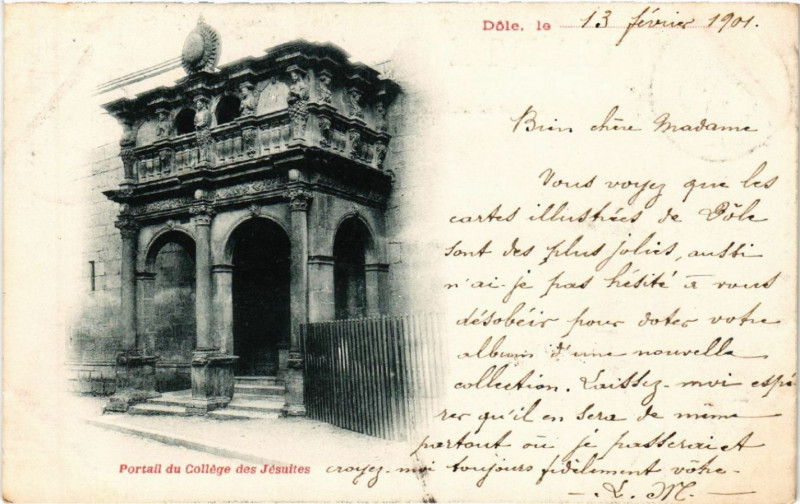 Dôle, le 13 février 1901.
Bien chère Madame
Vous voyez que les
cartes illustrées de Dôle
sont des plus jolies, aussi
n'ai-je pas hésité à vous
désobéir pour doter votre
album d'une nouvelle
collection. Laissez-moi espé
rer qu'il en sera de même
partout où je passerai et
croyez-moi toujours fidèlement vôtre-
- L. M. -
Portail du Collège des Jésuites